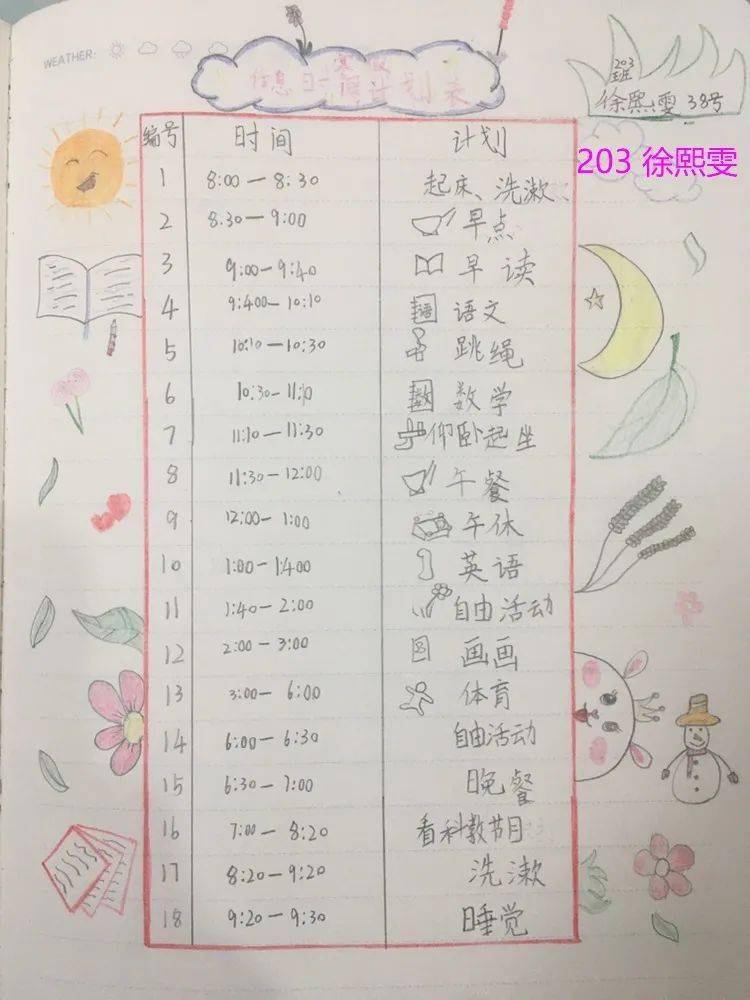 WEATHER:
寒假
息日一周计划表
203
班
徐熙雯 38号
203 徐熙雯
编号 时间 计划
1 8:00—8:30 起床、洗漱
2 8.30—9:00 早点
3 9:00—9:40 早读
4 9:400—10:10 语 语文
5 10:10—10:30 跳绳
6 10:30—11:10 数 数学
7 11:10—11:30 仰卧起坐
8 11:30—12:00 午餐
9 12:00—1:00 午休
10 1:00—1:400 英语
11 1:40—2:00 自由活动
12 2:00—3:00 画画
13 3:00—6:00 体育
14 6:00—6:30 自由活动
15 6:30—7:00 晚餐
16 7:00—8:20 看科教节目
17 8:20—9:20 洗漱
18 9:20—9:30 睡觉